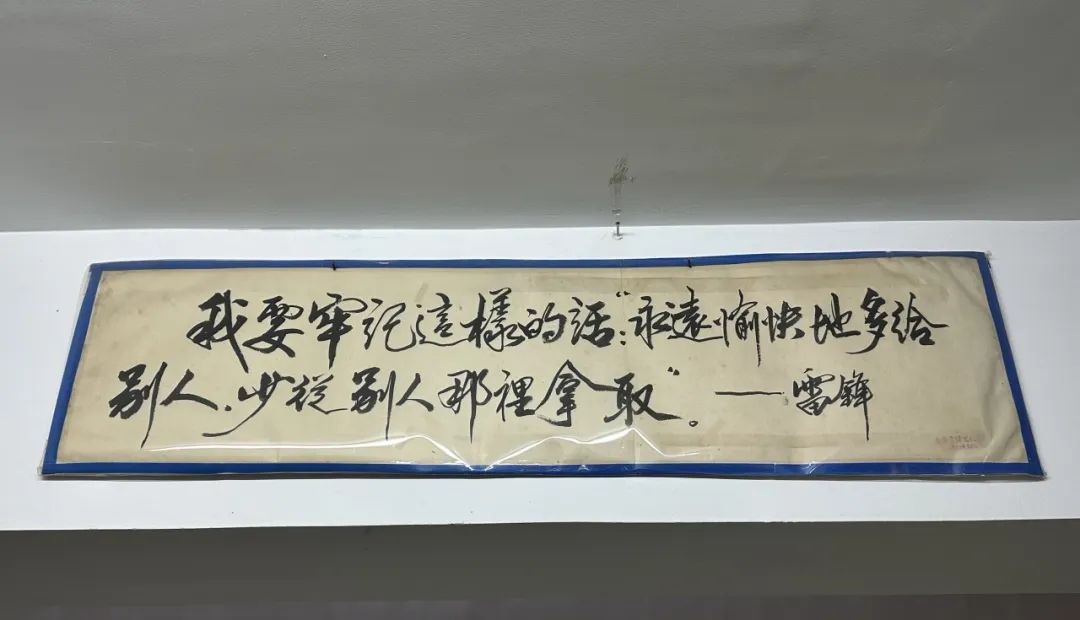 我要牢记這樣的話：“永遠愉快地多给
别人，少從别人那裡拿取”。——雷鋒